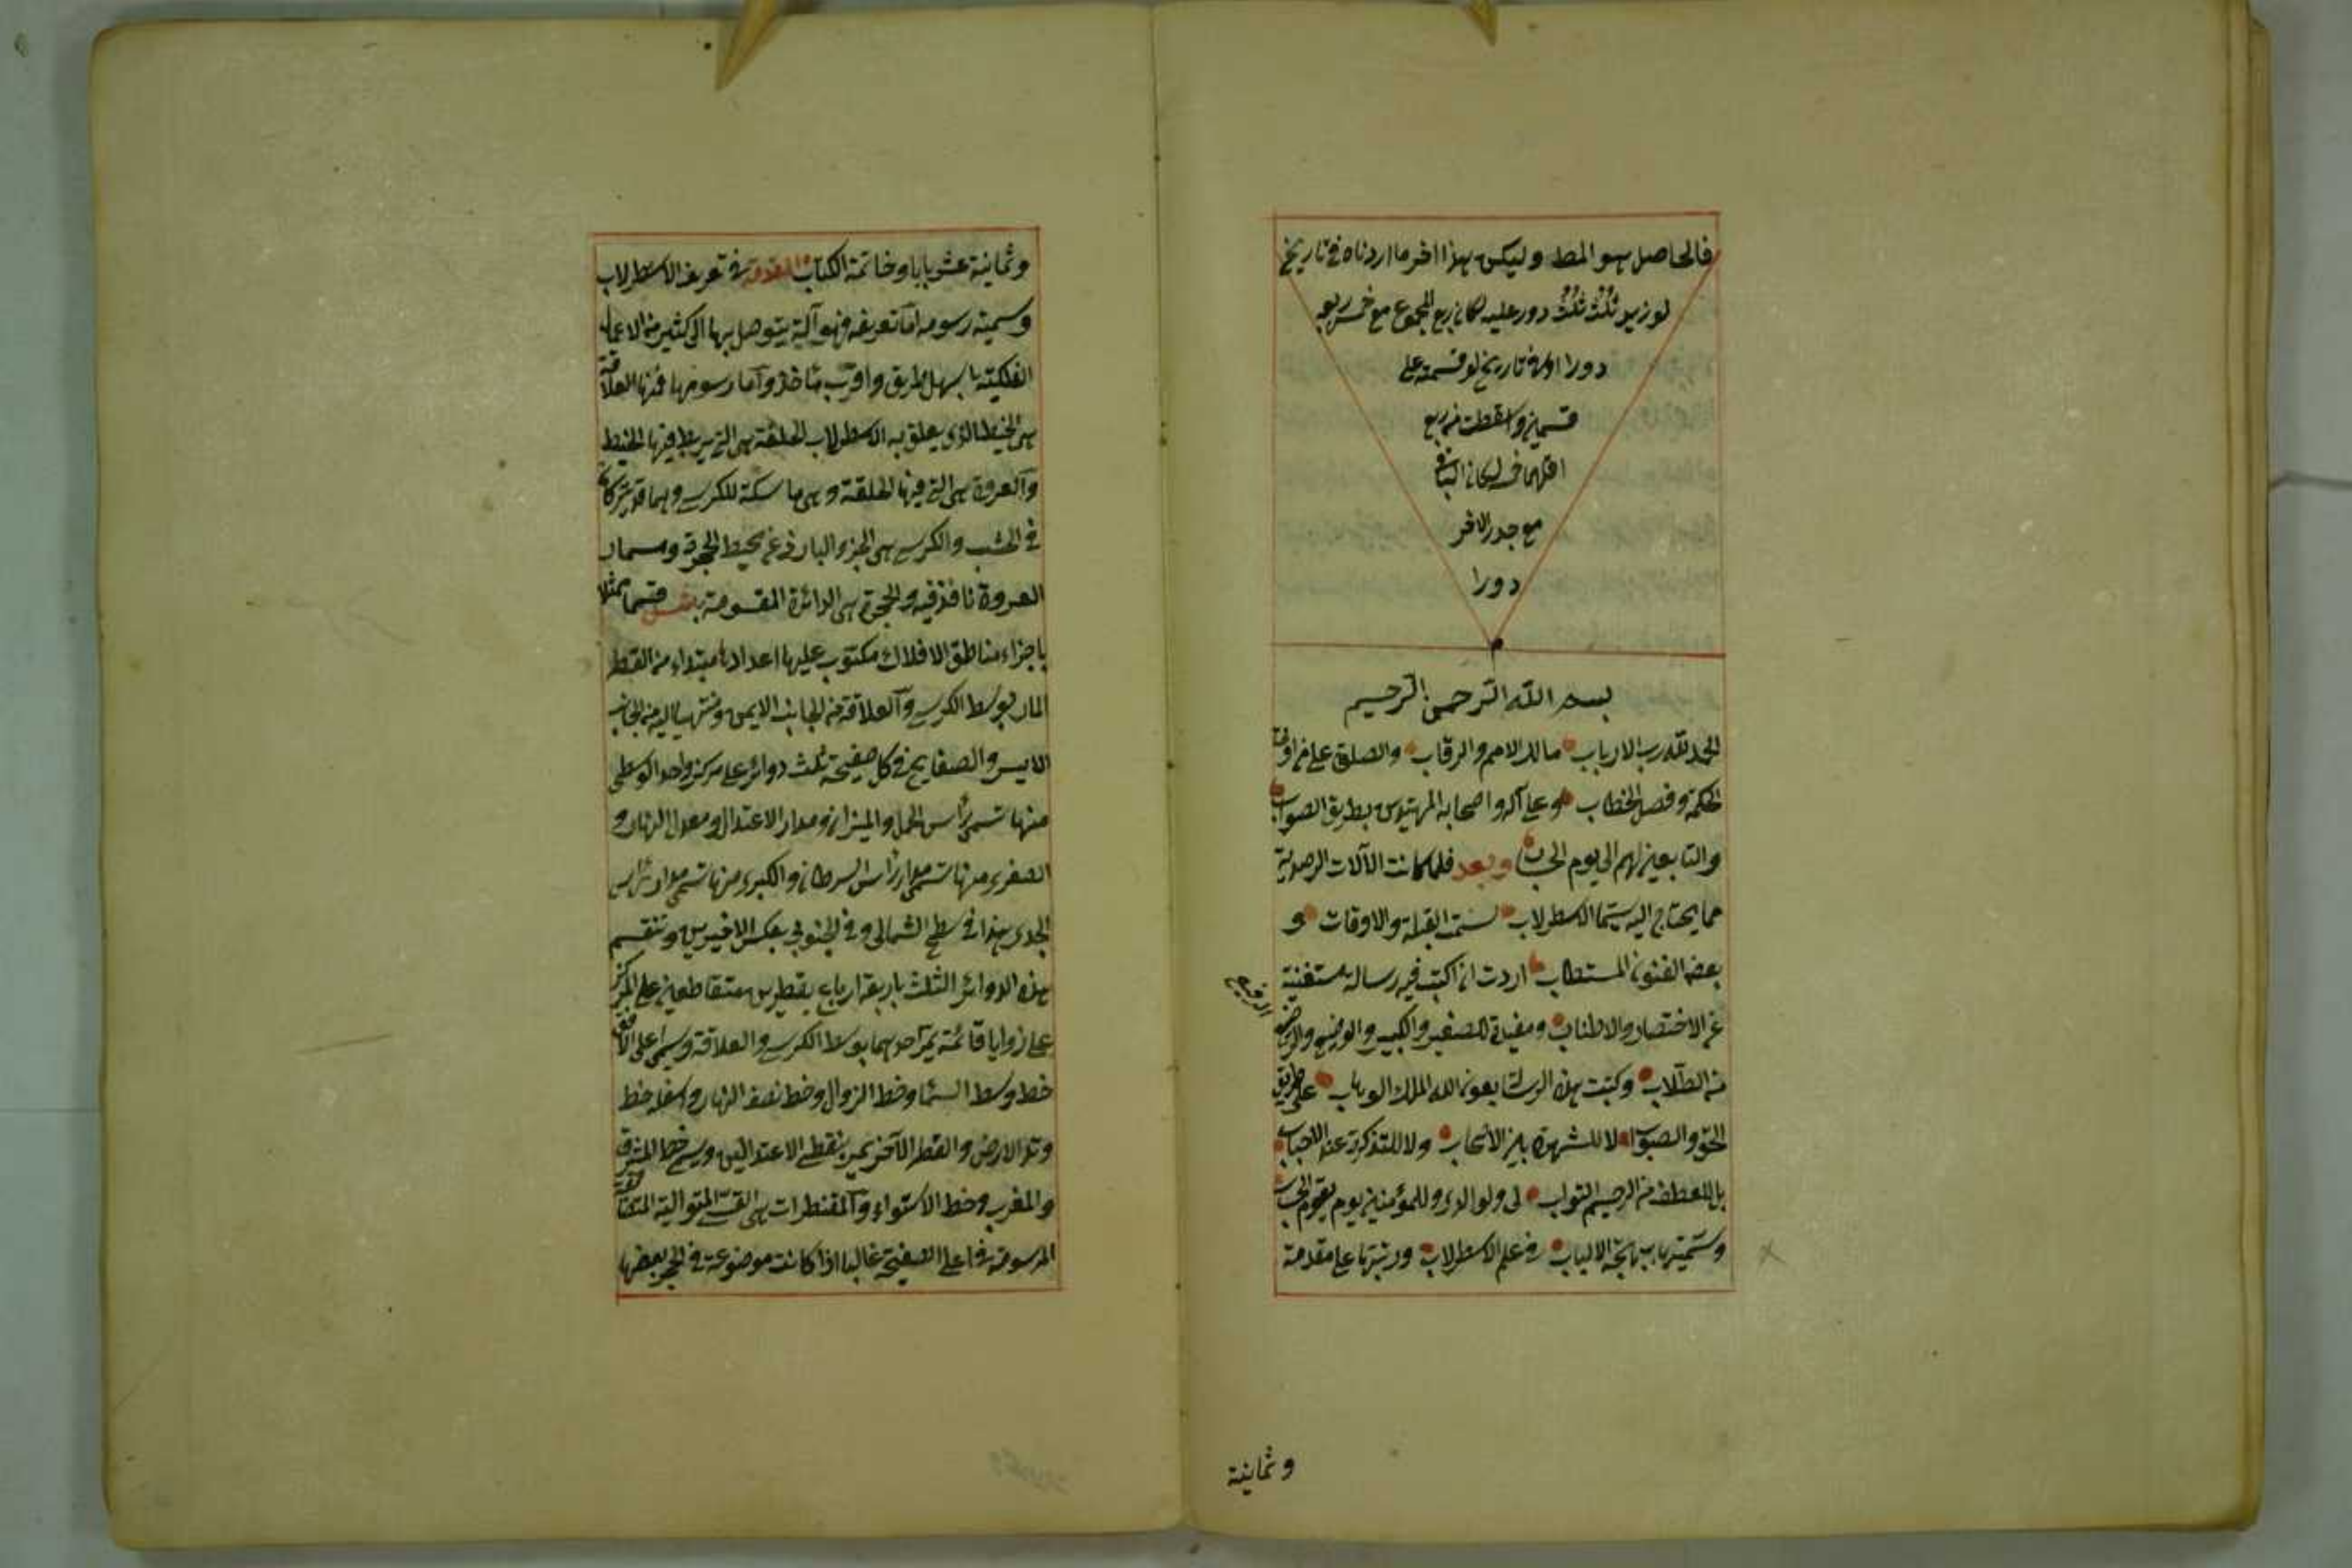 فالحاصل هو المط وليكن هذا اخر ما اردناه في تاريخ
لوزيد ثلث ثلث دور عليه لكان ربع المجموع مع خمس ربعه
دورا اوله في تاريخ لو قسمته على
قسمين واسقطت من ربع
اقلهما في لكان الباقي
مع جذر الاخر
دورا
بسم الله الرحمن الرحيم
الحمد لله رب الارباب مالك الامم والرقاب والصلوة على من اوتي
الحكمة وفصل الخطاب وعلى آله واصحابه المهتدين بطريق الصواب
والتابعين لهم الى يوم الحساب وبعد فلما كانت الآلات الرصدية
مما يحتاج اليه سيما الاسطرلاب لسمت القبلة والاوقات و
بعض الفنون المستطاب اردت ان اكتب فيه رسالة مستغنية
عن الاختصار والاطناب ومفيدة للصغير والكبير والوضيع والرفيع
الرفيع
من الطلاب وكتبت هذه الرسالة بعون الله الملك الوهاب على طريق
الحق والصواب لا للشهرة بين الاصحاب ولا للتذكرة عند الاحباب
بل للعطف من الرحيم التواب لي ولوالدي وللمؤمنين يوم يقوم الحساب
وسميتها ببهجة الالباب في علم الاسطرلاب ورتبتها على مقدمة
وثمانية
وثمانية عشر بابا وخاتمة الكتاب المقدمة في تعريف الاسطرلاب
وسمية رسومه اما تعريفه فهو آلة يتوصل بها الى كثير من الاعمال
الفلكية باسهل طريق واقرب مأخذ واما رسومها فمنها العلاقة
هي الخيط الذي يعلق به الاسطرلاب الحلقة هي التي يربط فيها الخيط
والعروة هي التي فيها الحلقة وهي ماسكة للكرسي وهما قد يتركان
في الخشب والكرسي هي الجزء البارز عن محيط الحجرة ومسمار
العروة نافذ فيه والحجرة هي الدائرة المقسومة بشس قسما مثلا
باجزاء مناطق الافلاك مكتوب عليها اعدادها مبتداء من القطر
المار بوسط الكرسي والعلاقة من الجانب الايمن ومنتهيا اليه من الجانب
الايسر والصفايح في كل صفيحة ثلث دوائر على مركز واحد الوسطى
منها تسمى رأس الحمل والميزان ومدار الاعتدال ومعدل النهار و
الصغرى منها تسمى مدار رأس السرطان والكبرى منها تسمى مدار رأس
الجدى هذا في سطح الشمالى وفي الجنوبى بعكس الاخيرين وتنقسم
هذه الدوائر الثلث باربعة ارباع بقطرين متقاطعين على المركز
على زوايا قائمة يمر احدهما بوسط الكرسي والعلاقة وسمى اعلى الافق
خط وسط السما وخط الزوال وخط نصف النهار واسفله خط
وتد الارض والقطر الآخر يمر بنقطتي الاعتدالين ويسمى خط المشرق
والمغرب وخط الاستواء والمقنطرات هي القسي المتوالية المتقاربة
المرسومة في اعلى الصفيحة غالبا اذا كانت موضوعة في الحجر بعضها